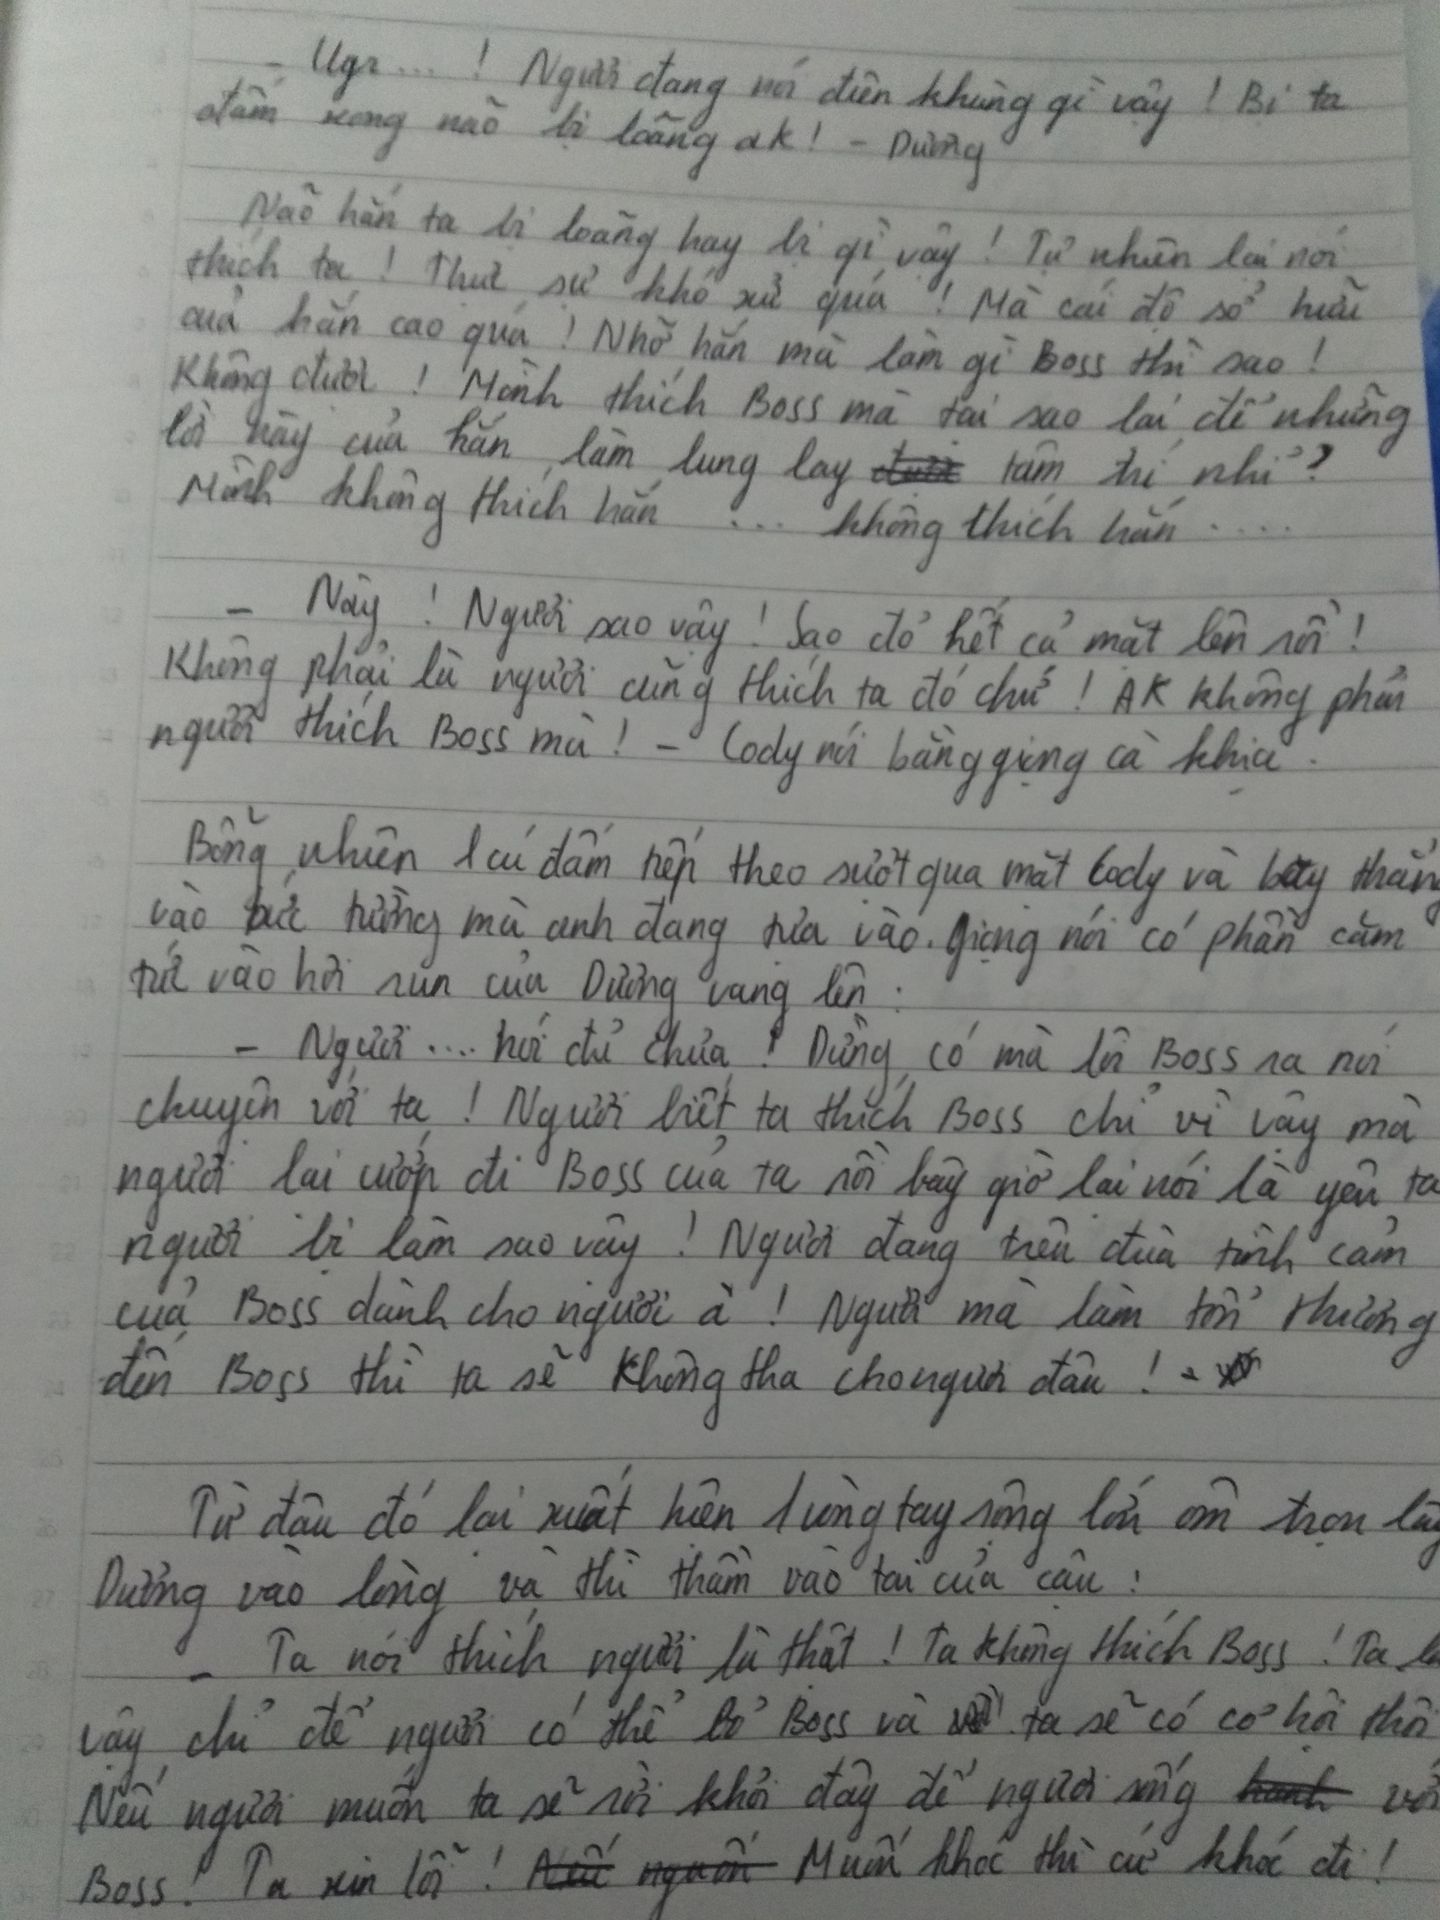 - Ugr...! Ngươi đang nói điên khùng gì vậy! Bị ta
đấm xong não bị loãng ak! - Dương
Não hắn ta bị loãng hay bị gì vậy! Tự nhiên lại nói
thích ta! Thực sự khó xử quá! Mà cái độ sở hữu
của hắn cao quá! Nhỡ hắn mà làm gì Boss thì sao!
Không được! Mình thích Boss mà tại sao lại để những
lời này của hắn làm lung lay tâm trí nhỉ?
Mình không thích hắn ... không thích hắn ....
- Này! Ngươi sao vậy! Sao đỏ hết cả mặt lên rồi!
Không phải là ngươi cũng thích ta đó chứ! AK không phải
ngươi thích Boss mà! - Cody nói bằng giọng cà khịa.
Bỗng nhiên 1 cú đấm tiếp theo sượt qua mặt Cody và bay thẳng
vào bức tường mà anh đang tựa vào. Giọng nói có phần căm
tức vào hơi run của Dương vang lên:
- Ngươi .... nói đủ chưa! Đừng có mà lôi Boss ra nói
chuyện với ta! Ngươi biết ta thích Boss chỉ vì vậy mà
ngươi lại cướp đi Boss của ta rồi bây giờ lại nói là yêu ta
ngươi bị làm sao vậy! Ngươi đang trêu đùa tình cảm
của Boss dành cho ngươi à! Ngươi mà làm tổn thương
đến Boss thì ta sẽ không tha cho ngươi đâu! -
Từ đâu đó lại xuất hiện 1 vòng tay rộng lớn ôm trọn lấy
Dương vào lòng và thì thầm vào tai của cậu:
- Ta nói thích ngươi là thật! Ta không thích Boss! Ta
vậy chỉ để ngươi có thể bỏ Boss và ta sẽ có cơ hội thôi
Nếu ngươi muốn ta sẽ rời khỏi đây để ngươi sống với
Boss! Ta xin lỗi! Muốn khóc thì cứ khóc đi!